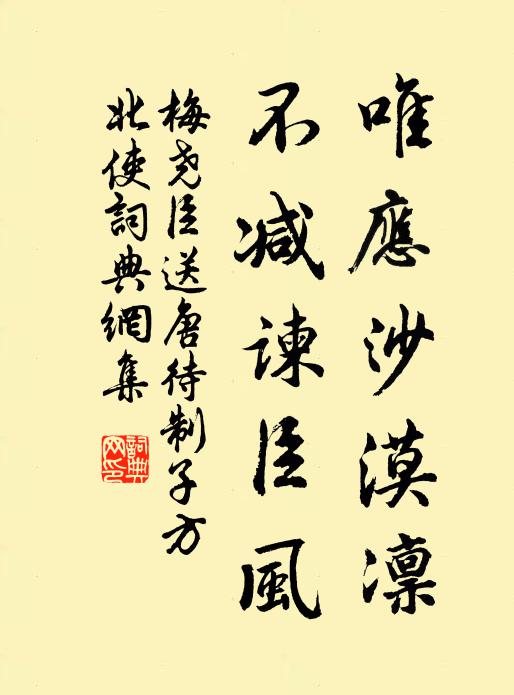 唯應沙漠凛
不减諫臣風
梅尧臣送唐待制子方
北使詞典網集
詞典网印